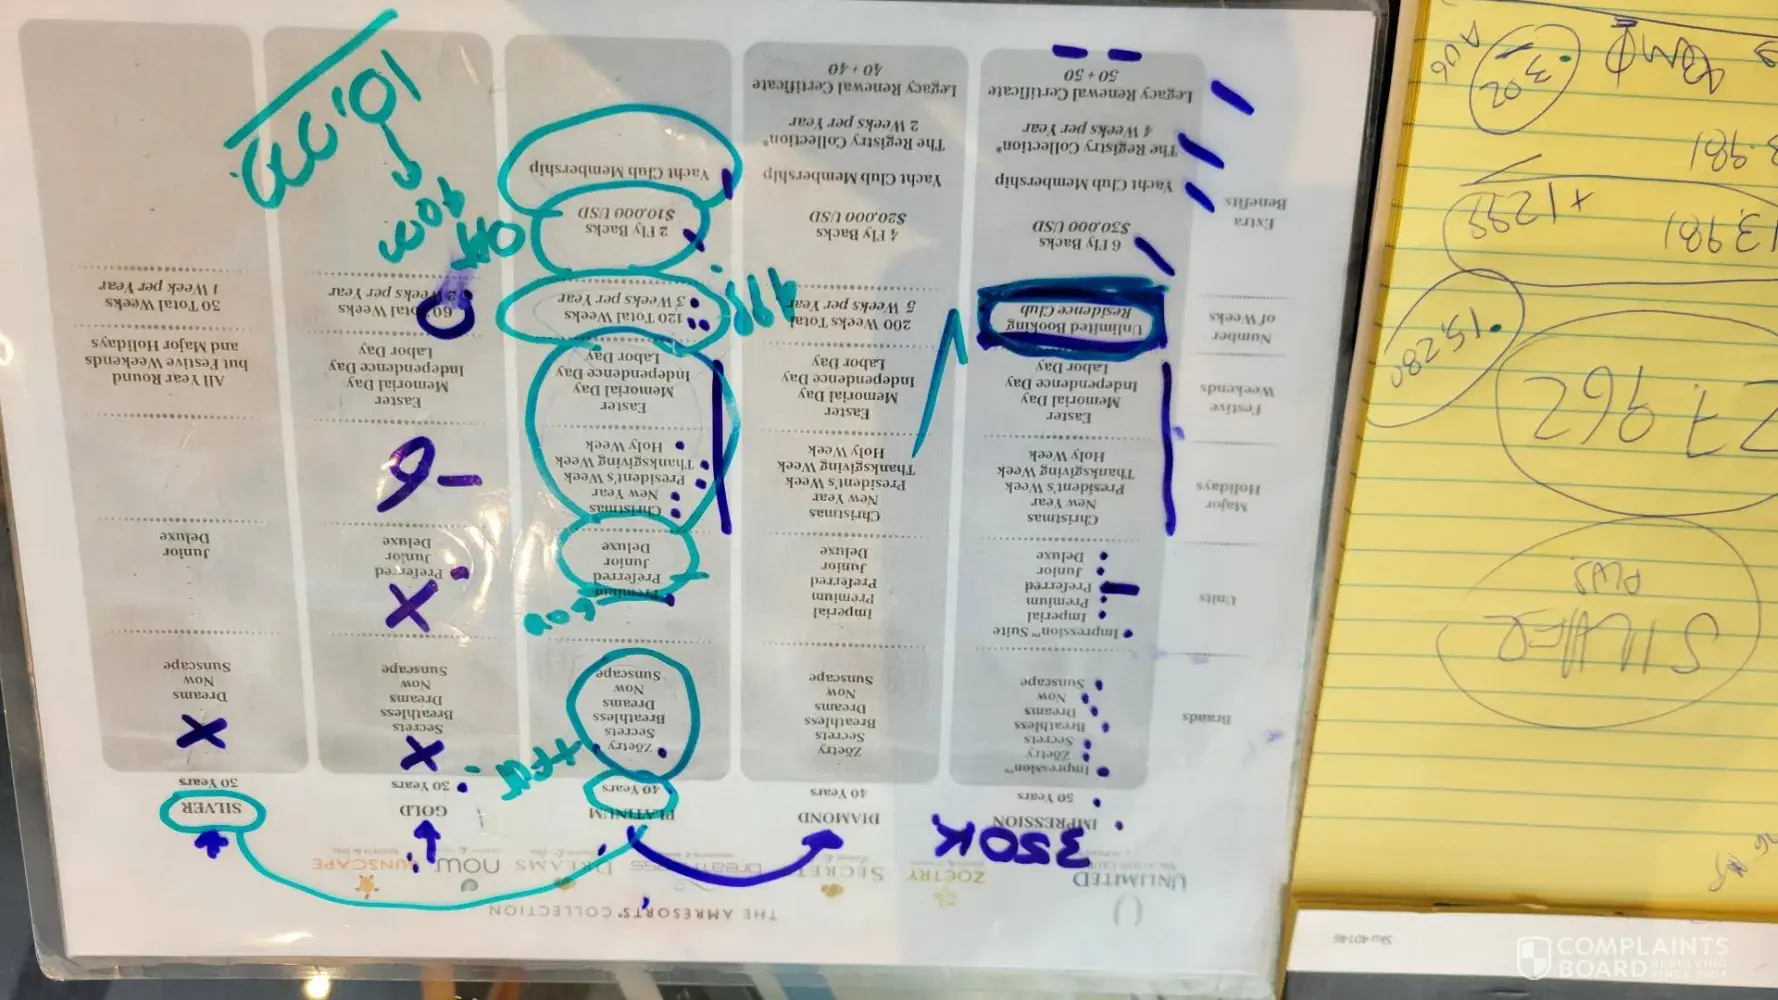 THE AMRESORTS® COLLECTION
UNLIMITED
VACATION CLUB
ZOËTRY
SECRETS
breathless
DREAMS
now
SUNSCAPE
350K
IMPRESSION
50 Years
DIAMOND
40 Years
PLATINUM
40 Years
GOLD
30 Years
SILVER
30 Years
Brands
Impression™
Zöetry
Secrets
Breathless
Dreams
Now
Sunscape
Zöetry
Secrets
Breathless
Dreams
Now
Sunscape
Zöetry
Secrets
Breathless
Dreams
Now
Sunscape
Secrets
Breathless
Dreams
Now
Sunscape
Dreams
Now
Sunscape
Units
Impression™ Suite
Imperial
Premium
Preferred
Junior
Deluxe
Imperial
Premium
Preferred
Junior
Deluxe
Premium
Preferred
Junior
Deluxe
Preferred
Junior
Deluxe
Junior
Deluxe
Major
Holidays
Christmas
New Year
President's Week
Thanksgiving Week
Holy Week
Christmas
New Year
President's Week
Thanksgiving Week
Holy Week
Christmas
New Year
President's Week
Thanksgiving Week
Holy Week
Festive
Weekends
Easter
Memorial Day
Independence Day
Labor Day
Easter
Memorial Day
Independence Day
Labor Day
Easter
Memorial Day
Independence Day
Labor Day
Easter
Memorial Day
Independence Day
Labor Day
All Year Round
but Festive Weekends
and Major Holidays
Number
of Weeks
Unlimited Booking
Residence Club
200 Weeks Total
5 Weeks per Year
120 Total Weeks
3 Weeks per Year
60 Total Weeks
2 Weeks per Year
30 Total Weeks
1 Week per Year
Extra
Benefits
6 Fly Backs
$30,000 USD
Yacht Club Membership
The Registry Collection®
4 Weeks per Year
Legacy Renewal Certificate
50 + 50
4 Fly Backs
$20,000 USD
Yacht Club Membership
The Registry Collection®
2 Weeks per Year
Legacy Renewal Certificate
40 + 40
2 Fly Backs
$10,000 USD
Yacht Club Membership
SILVER
PLUS
15,280
13,981
+ 1299
302
AUG
Sku 40146
COMPLAINTS
BOARD
RESOLVING
SINCE 2004